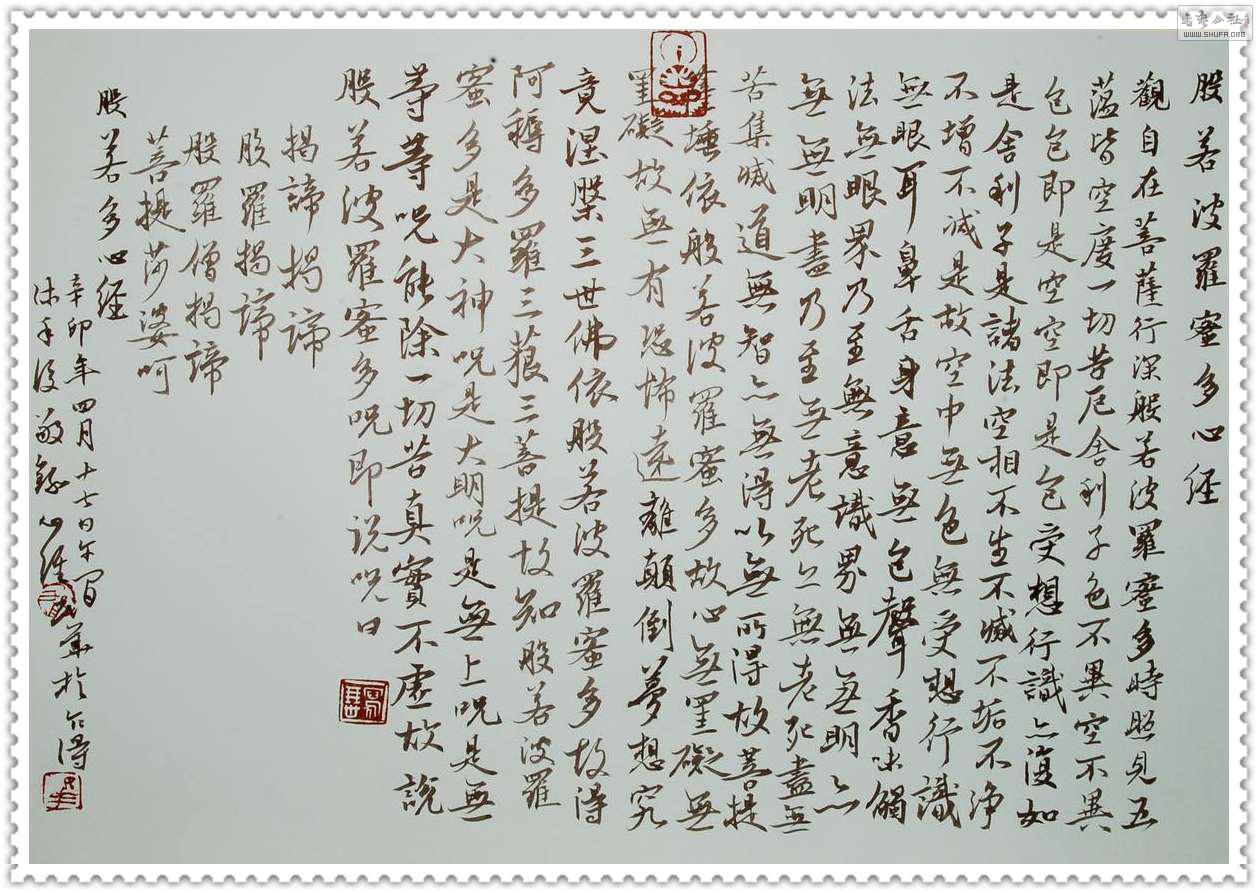 般若波羅蜜多心经
觀自在菩薩行深般若波羅蜜多時照見五
蕴皆空度一切苦厄舍利子色不異空不異
色色即是空空即是色受想行識亦復如
是舍利子是諸法空相不生不滅不垢不净
不增不减是故空中無色無受想行識
無眼耳鼻舌身意無色聲香味觸
法無眼界乃至無意識界無無明亦
無無明盡乃至無老死亦無老死盡無
苦集滅道無智亦無得以無所得故菩提
薩埵依般若波羅蜜多故心無罣礙無
罣礙故無有恐怖遠離顛倒夢想究
竟涅槃三世佛依般若波羅蜜多故得
阿耨多羅三藐三菩提故知般若波羅
蜜多是大神咒是大明咒是無上咒是無
等等咒能除一切苦真實不虛故説
般若波羅蜜多咒即说咒曰
揭諦揭諦
般羅揭諦
般羅僧揭諦
菩提莎婆呵
般若多心經
辛卯年四月十七日午間華於得
沐手後敬録心經
WWW.SHUFA.ORG